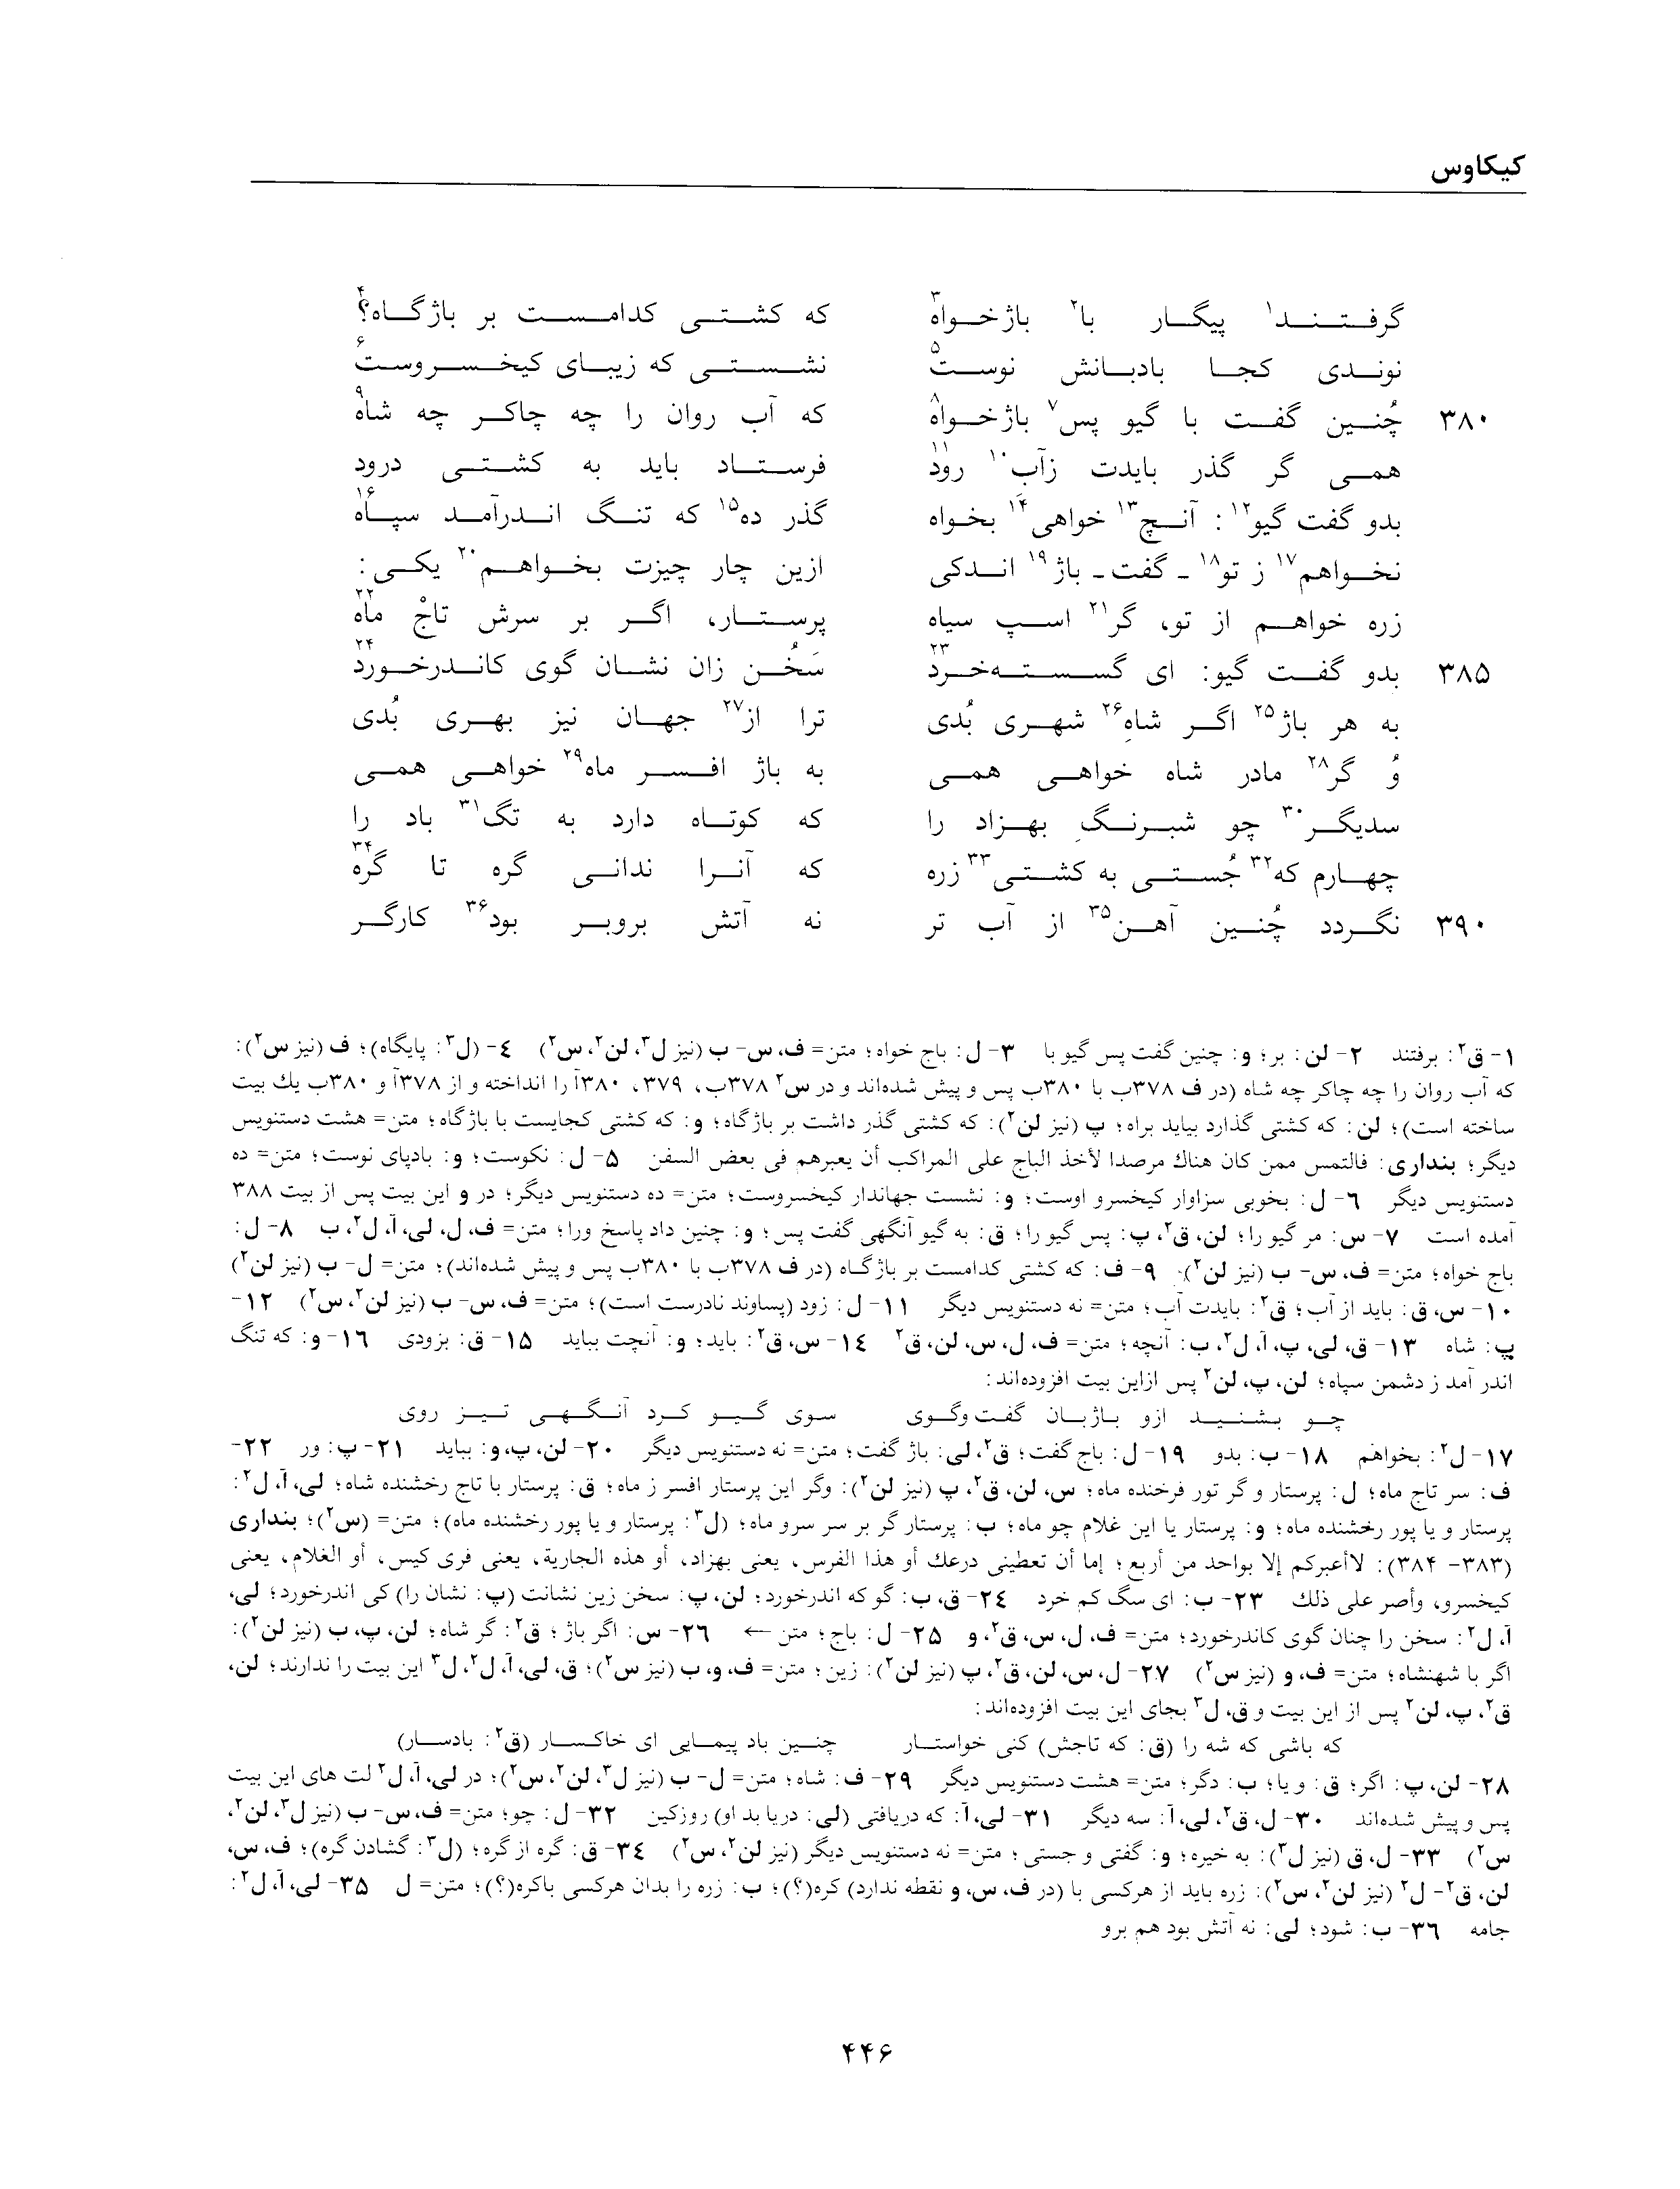 کیکاوس
گرفتند۱ پیگار با۲ باژخواه۳ که کشتی کدامست بر باژگاه؟۴
نوندی کجا بادبانش نوست۵ نشستی که زیبای کیخسروست۶
۳۸۰ چُنین گفت با گیو پس۷ باژخواه۸ که آب روان را چه چاکر چه شاه۹
همی گر گذر بایدت زآب۱۰ رود۱۱ فرستاد باید به کشتی درود
بدو گفت گیو۱۲: آنچ۱۳ خواهی۱۴ بخواه گذر ده۱۵ که تنگ اندرآمد سپاه۱۶
نخواهم۱۷ ز تو۱۸ ـ گفت ـ باژ۱۹ اندکی ازین چار چیزت بخواهم۲۰ یکی:
زره خواهم از تو، گر۲۱ اسپ سیاه پرستار، اگر بر سرش تاجْ ماه۲۲
۳۸۵ بدو گفت گیو: ای گسسته‌خرد۲۳ سَخُن زان نشان گوی کاندرخورد۲۴
به هر باژ۲۵ اگر شاهِ۲۶ شهری بُدی ترا از۲۷ جهان نیز بهری بُدی
وُ گر۲۸ مادر شاه خواهی همی به باژ افسر ماه۲۹ خواهی همی
سدیگر۳۰ چو شبرنگِ بهزاد را که کوتاه دارد به تگ۳۱ باد را
چهارم که۳۲ جُستی به کشتی۳۳ زره که آنرا ندانی گره تا گره۳۴
۳۹۰ نگردد چُنین آهن۳۵ از آب تر نه آتش بروبر بود۳۶ کارگر
۱- ق۲: برفتند ۲- لن: بر؛ و: چنین گفت پس گیو با ۳- ل: باج خواه؛ متن= ف، س- ب (نیز ل۳، لن۲، س۲) ٤- (ل۳: پایگاه)؛ ف (نیز س۲):
که آب روان را چه چاکر چه شاه (در ف ۳۷۸ب با ۳۸۰ب پس و پیش شده‌اند و در س۲ ۳۷۸ب، ۳۷۹، ۳۸۰آ را انداخته و از ۳۷۸آ و ۳۸۰ب یك بیت
ساخته است)؛ لن: که کشتی گذارد بیاید براه؛ پ (نیز لن۲): که کشتی گذر داشت بر باژگاه؛ و: که کشتی کجایست با باژگاه؛ متن= هشت دستنویس
دیگر؛ بنداری: فالتمس ممن كان هناك مرصدا لأخذ الباج على المراكب أن يعبرهم فى بعض السفن ۵- ل: نکوست؛ و: بادپای نوست؛ متن= ده
دستنویس دیگر ٦- ل: بخوبی سزاوار کیخسرو اوست؛ و: نشست جهاندار کیخسروست؛ متن= ده دستنویس دیگر؛ در و این بیت پس از بیت ۳۸۸
آمده است ۷- س: مر گیو را؛ لن، ق۲، پ: پس گیو را؛ ق: به گیو آنگهی گفت پس؛ و: چنین داد پاسخ ورا؛ متن= ف، ل، لی، آ، ل۲، ب ۸- ل:
باج خواه؛ متن= ف، س- ب (نیز لن۲) ۹- ف: که کشتی کدامست بر باژگاه (در ف ۳۷۸ب با ۳۸۰ب پس و پیش شده‌اند)؛ متن= ل- ب (نیز لن۲)
۱۰- س، ق: باید از آب؛ ق۲: بایدت آب؛ متن= نه دستنویس دیگر ۱۱- ل: زود (پساوند نادرست است)؛ متن= ف، س- ب (نیز لن۲، س۲) ۱۲-
پ: شاه ۱۳- ق، لی، پ، آ، ل۲، ب: آنچه؛ متن= ف، ل، س، لن، ق۲ ۱٤- س، ق۲: باید؛ و: آنچت بباید ۱۵- ق: بزودی ۱٦- و: که تنگ
اندر آمد ز دشمن سپاه؛ لن، پ، لن۲ پس ازاین بیت افزوده‌اند:
چو بشنید ازو باژبان گفت‌وگوی سوی گیو کرد آنگهی تیز روی
۱۷- ل۲: بخواهم ۱۸- ب: بدو ۱۹- ل: باج گفت؛ ق۲، لی: باژ گفت؛ متن= نه دستنویس دیگر ۲۰- لن، پ، و: بباید ۲۱- پ: ور ۲۲-
ف: سر تاج ماه؛ ل: پرستار و گر تور فرخنده ماه؛ س، لن، ق۲، پ (نیز لن۲): وگر این پرستار افسر ز ماه؛ ق: پرستار با تاج رخشنده شاه؛ لی، آ، ل۲:
پرستار و یا پور رخشنده ماه؛ و: پرستار یا این غلام چو ماه؛ ب: پرستار گر بر سر سرو ماه؛ (ل۳: پرستار و یا پور رخشنده ماه)؛ متن= (س۲)؛ بنداری
(۳۸۳- ۳۸۴): لاأعبركم إلا بواحد من أربع؛ إما أن تعطينى درعك أو هذا الفرس، يعنى بهزاد، أو هذه الجارية، يعنى فرى كيس، أو الغلام، يعنى
كيخسرو، وأصر على ذلك ۲۳- ب: ای سگ کم خرد ۲٤- ق، ب: گو که اندرخورد؛ لن، پ: سخن زین نشانت (پ: نشان را) کی اندرخورد؛ لی،
آ، ل۲: سخن را چنان گوی کاندرخورد؛ متن= ف، ل، س، ق۲، و ۲۵- ل: باج؛ متن ← ۲٦- س: اگر باژ؛ ق۲: گر شاه؛ لن، پ، ب (نیز لن۲):
اگر با شهنشاه؛ متن= ف، و (نیز س۲) ۲۷- ل، س، لن، ق۲، پ (نیز لن۲): زین؛ متن= ف، و، ب (نیز س۲)؛ ق، لی، آ، ل۲، ل۳ این بیت را ندارند؛ لن،
ق۲، پ، لن۲ پس از این بیت و ق، ل۳ بجای این بیت افزوده‌اند:
که باشی که شه را (ق: که تاجش) کنی خواستار چنین باد پیمایی ای خاکسار (ق۲: بادسار)
۲۸- لن، پ: اگر؛ ق: و یا؛ ب: دگر؛ متن= هشت دستنویس دیگر ۲۹- ف: شاه؛ متن= ل- ب (نیز ل۳، لن۲، س۲)؛ در لی، آ، ل۲ لت های این بیت
پس و پیش شده‌اند ۳۰- ل، ق۲، لی، آ: سه دیگر ۳۱- لی، آ: که دریافتی (لی: دریا بد او) روزکین ۳۲- ل: چو؛ متن= ف، س- ب (نیز ل۳، لن۲،
س۲) ۳۳- ل، ق (نیز ل۳): به خیره؛ و: گفتی و جستی؛ متن= نه دستنویس دیگر (نیز لن۲، س۲) ۳٤- ق: گره از گره؛ (ل۳: گشادن گره)؛ ف، س،
لن، ق۲- ل۲ (نیز لن۲، س۲): زره باید از هرکسی با (در ف، س، و نقطه ندارد) کره(؟)؛ ب: زره را بدان هرکسی باکره(؟)؛ متن= ل ۳۵- لی، آ، ل۲:
جامه ۳٦- ب: شود؛ لی: نه آتش بود هم برو
۴۴۶